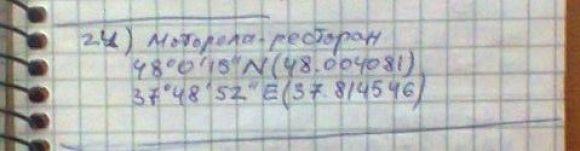 24) Моторола-ресторан
48°0'15"N(48.004081)
37°48'52"E(37.814546)